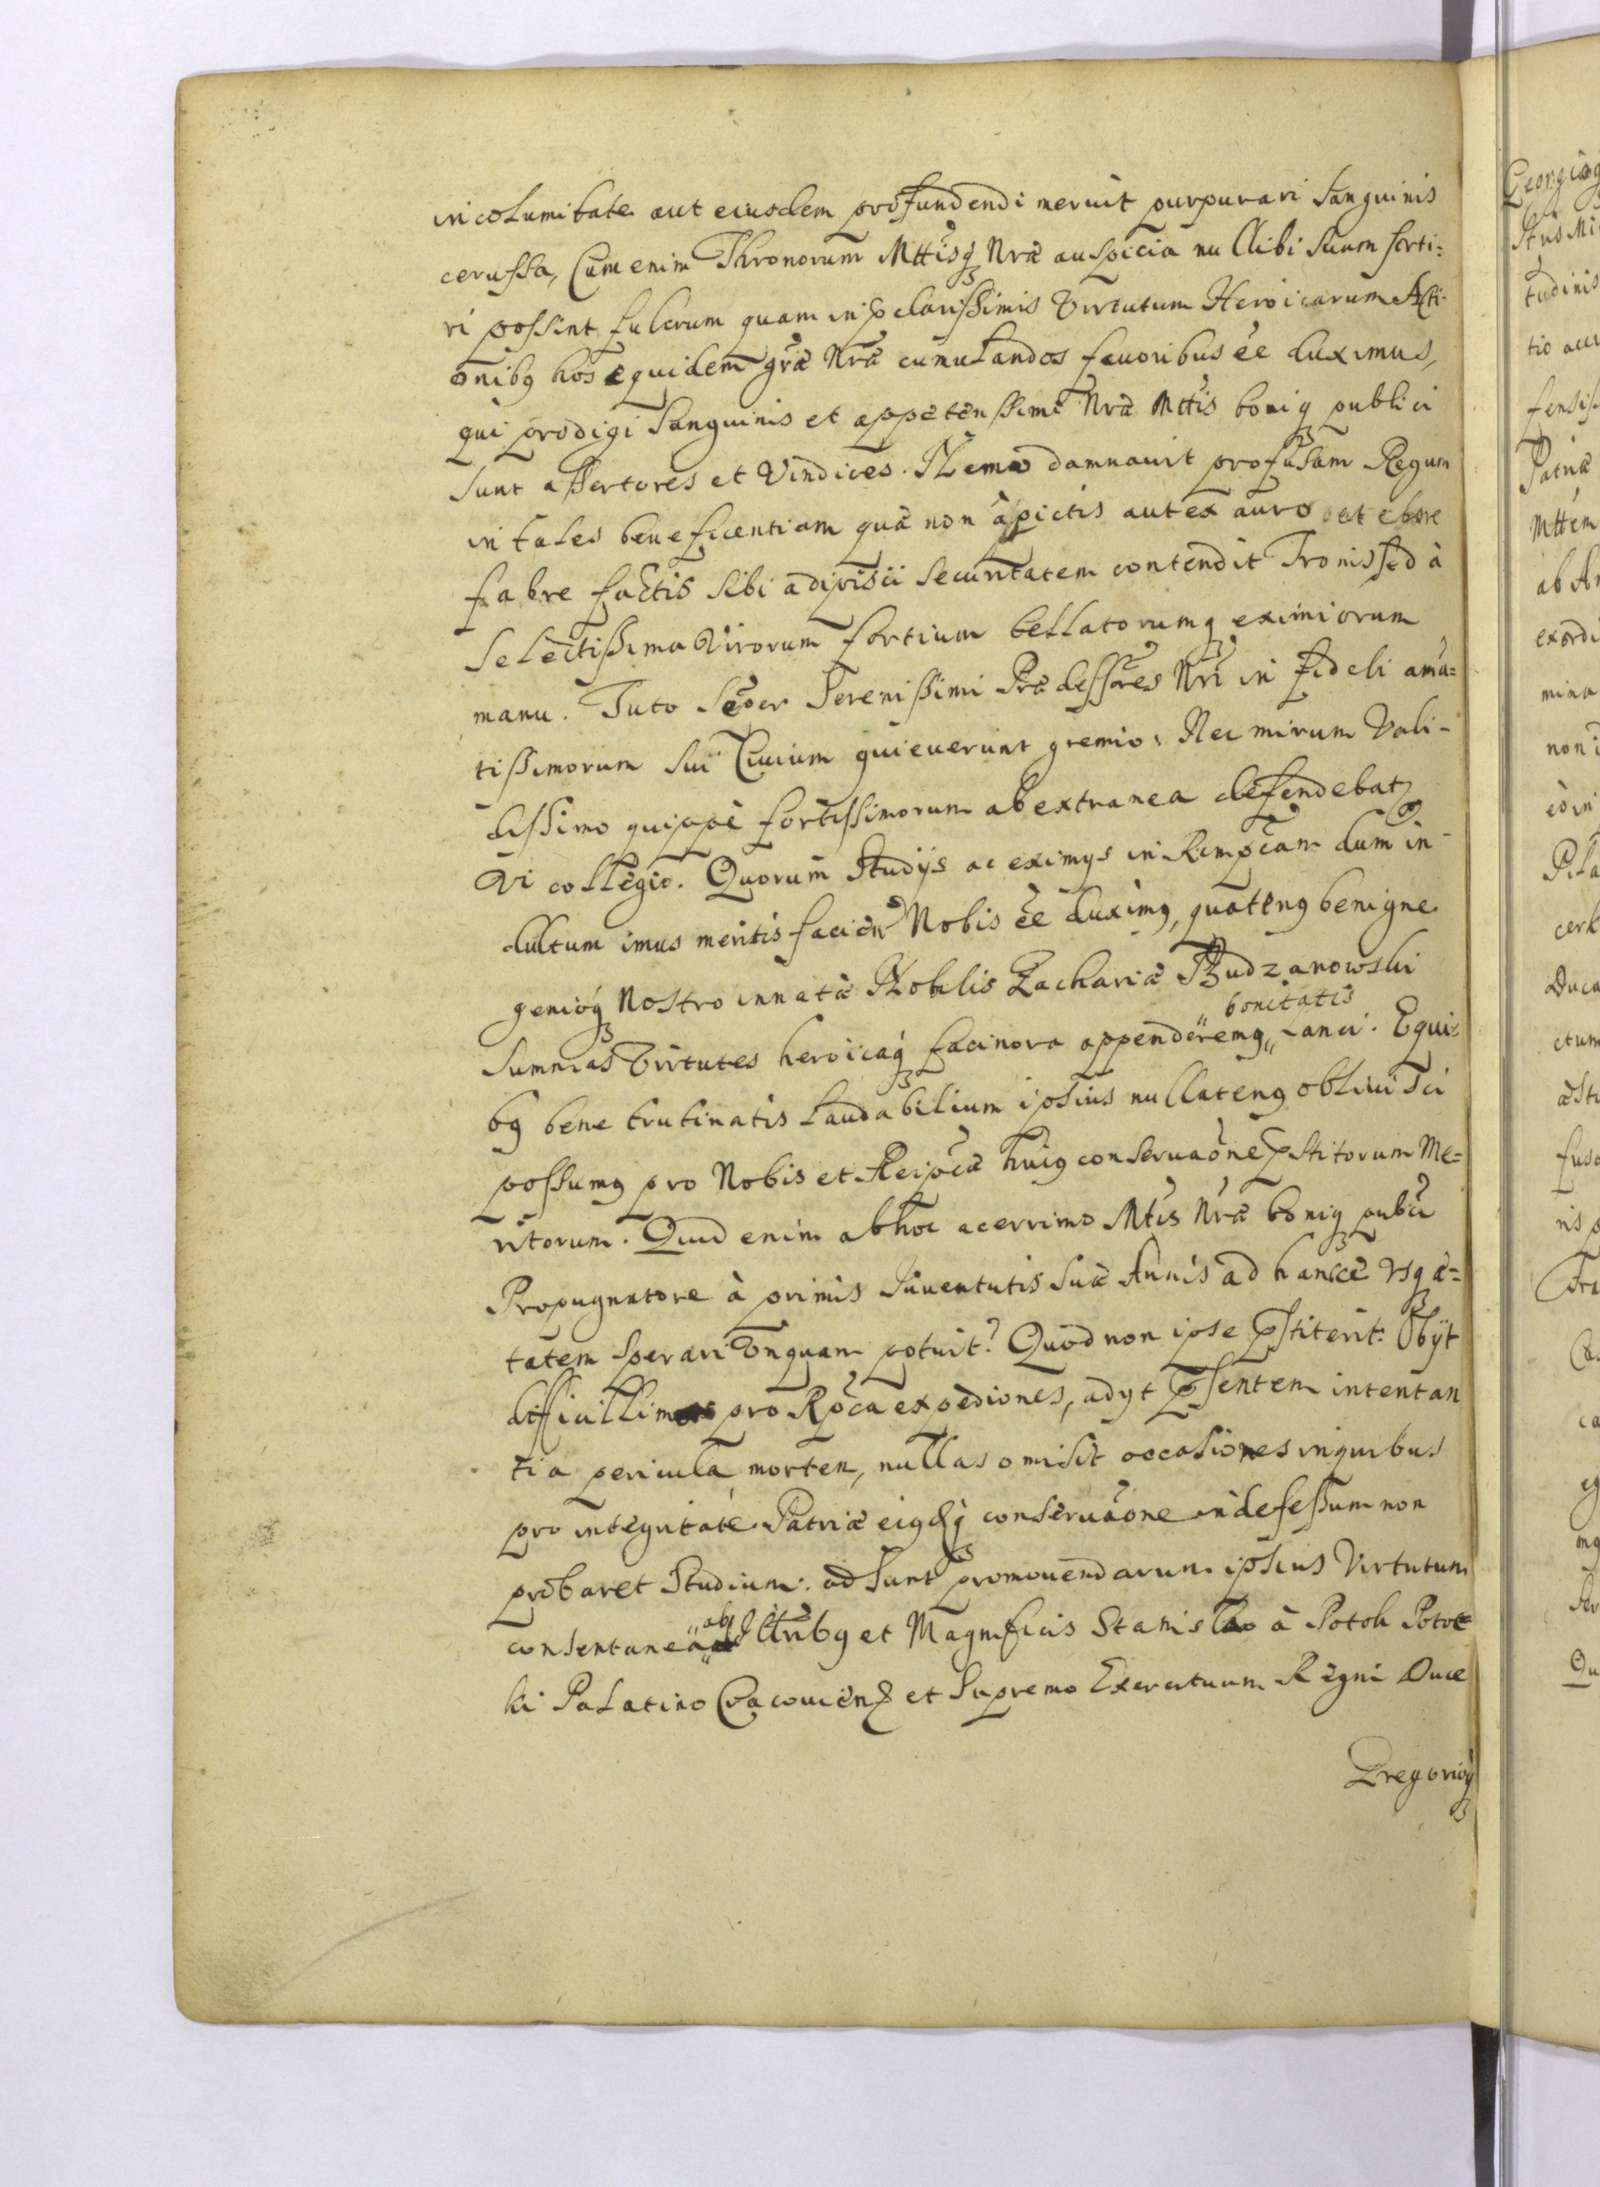 incolumitate aut eiusdem profundendi meruit purpurari Sanguinis
cerussa, Cum enim Thronorum Mttisq́ Nrae auspicia nullibi Suum sorti=
ri possint fulcrum quam in p̱clarissimis Virtutum Heroicarum Acti-
onibꝯ hos equidem gr̃ae Nrae cumulandos fauoribus ee̅ duximus,
qui prodigi Sanguinis et appetentissimi Nrae Mttis boniq́ publici
Sunt assertores et Vindices. Nemo damnauit profusam Regum
in tales beneficentiam quae non à pictis aut ex auro vel ebore
fabre factis Sibi adipisci Securitatem contendit Tronis sed à
Selectissima Virorum fortium bellatorumq́ eximiorum
manu. Tuto Semper Serenissimi Praedessores Nri in fideli aman=
tissimorum Sui Ciuium quieuerunt gremio, Nec mirum Vali-
dissimo quippè fortissimorum ab extranea defendebatr̃
Vi collegio. Quorum Studijs ac eximys in Rempcam dum in-
dultum imus meritis faciend Nobis ee̅ duximꝯ, quatenꝯ benigne
genioq́ Nostro innatae Nobilis Zachariae Budzanowski
bonitatis
Summas Virtutes heroicaq́ facinora appenderemꝯ,, lanci. Equi-
bꝯ bene trutinatis laudabilium ipsius nullatenꝯ obliuisci
possumꝯ pro Nobis et Reipcae huiꝯ conseruaõne p̱stitorum Me=
ritorum. Quid enim ab hoc acerrimo Mttis Nrae boniq́ pubci
Propugnatore à primis Iuuentutis Suae Annis ad hance Vsq́ ae=
tatem sperari Vnquam potuit? Quod non ipse p̱stiterit: Obijt
difficillimas pro Rpca expediones, adyt p̱sentem intentan
tia pericula mortem, nullas omisit occasiones in quibus
pro integritate Patriae eiꝯdq́ conseruaõne indefessum non
probaret Studium. ad Sunt promouendarum ipsius Virtutum
ab
consentanea,, Illribꝯ et Magnificis Stanislao à Potok Potoc
ki Palatino Cracouien̄ et Supremo Exercituum Regni Duce
Gregorioq́